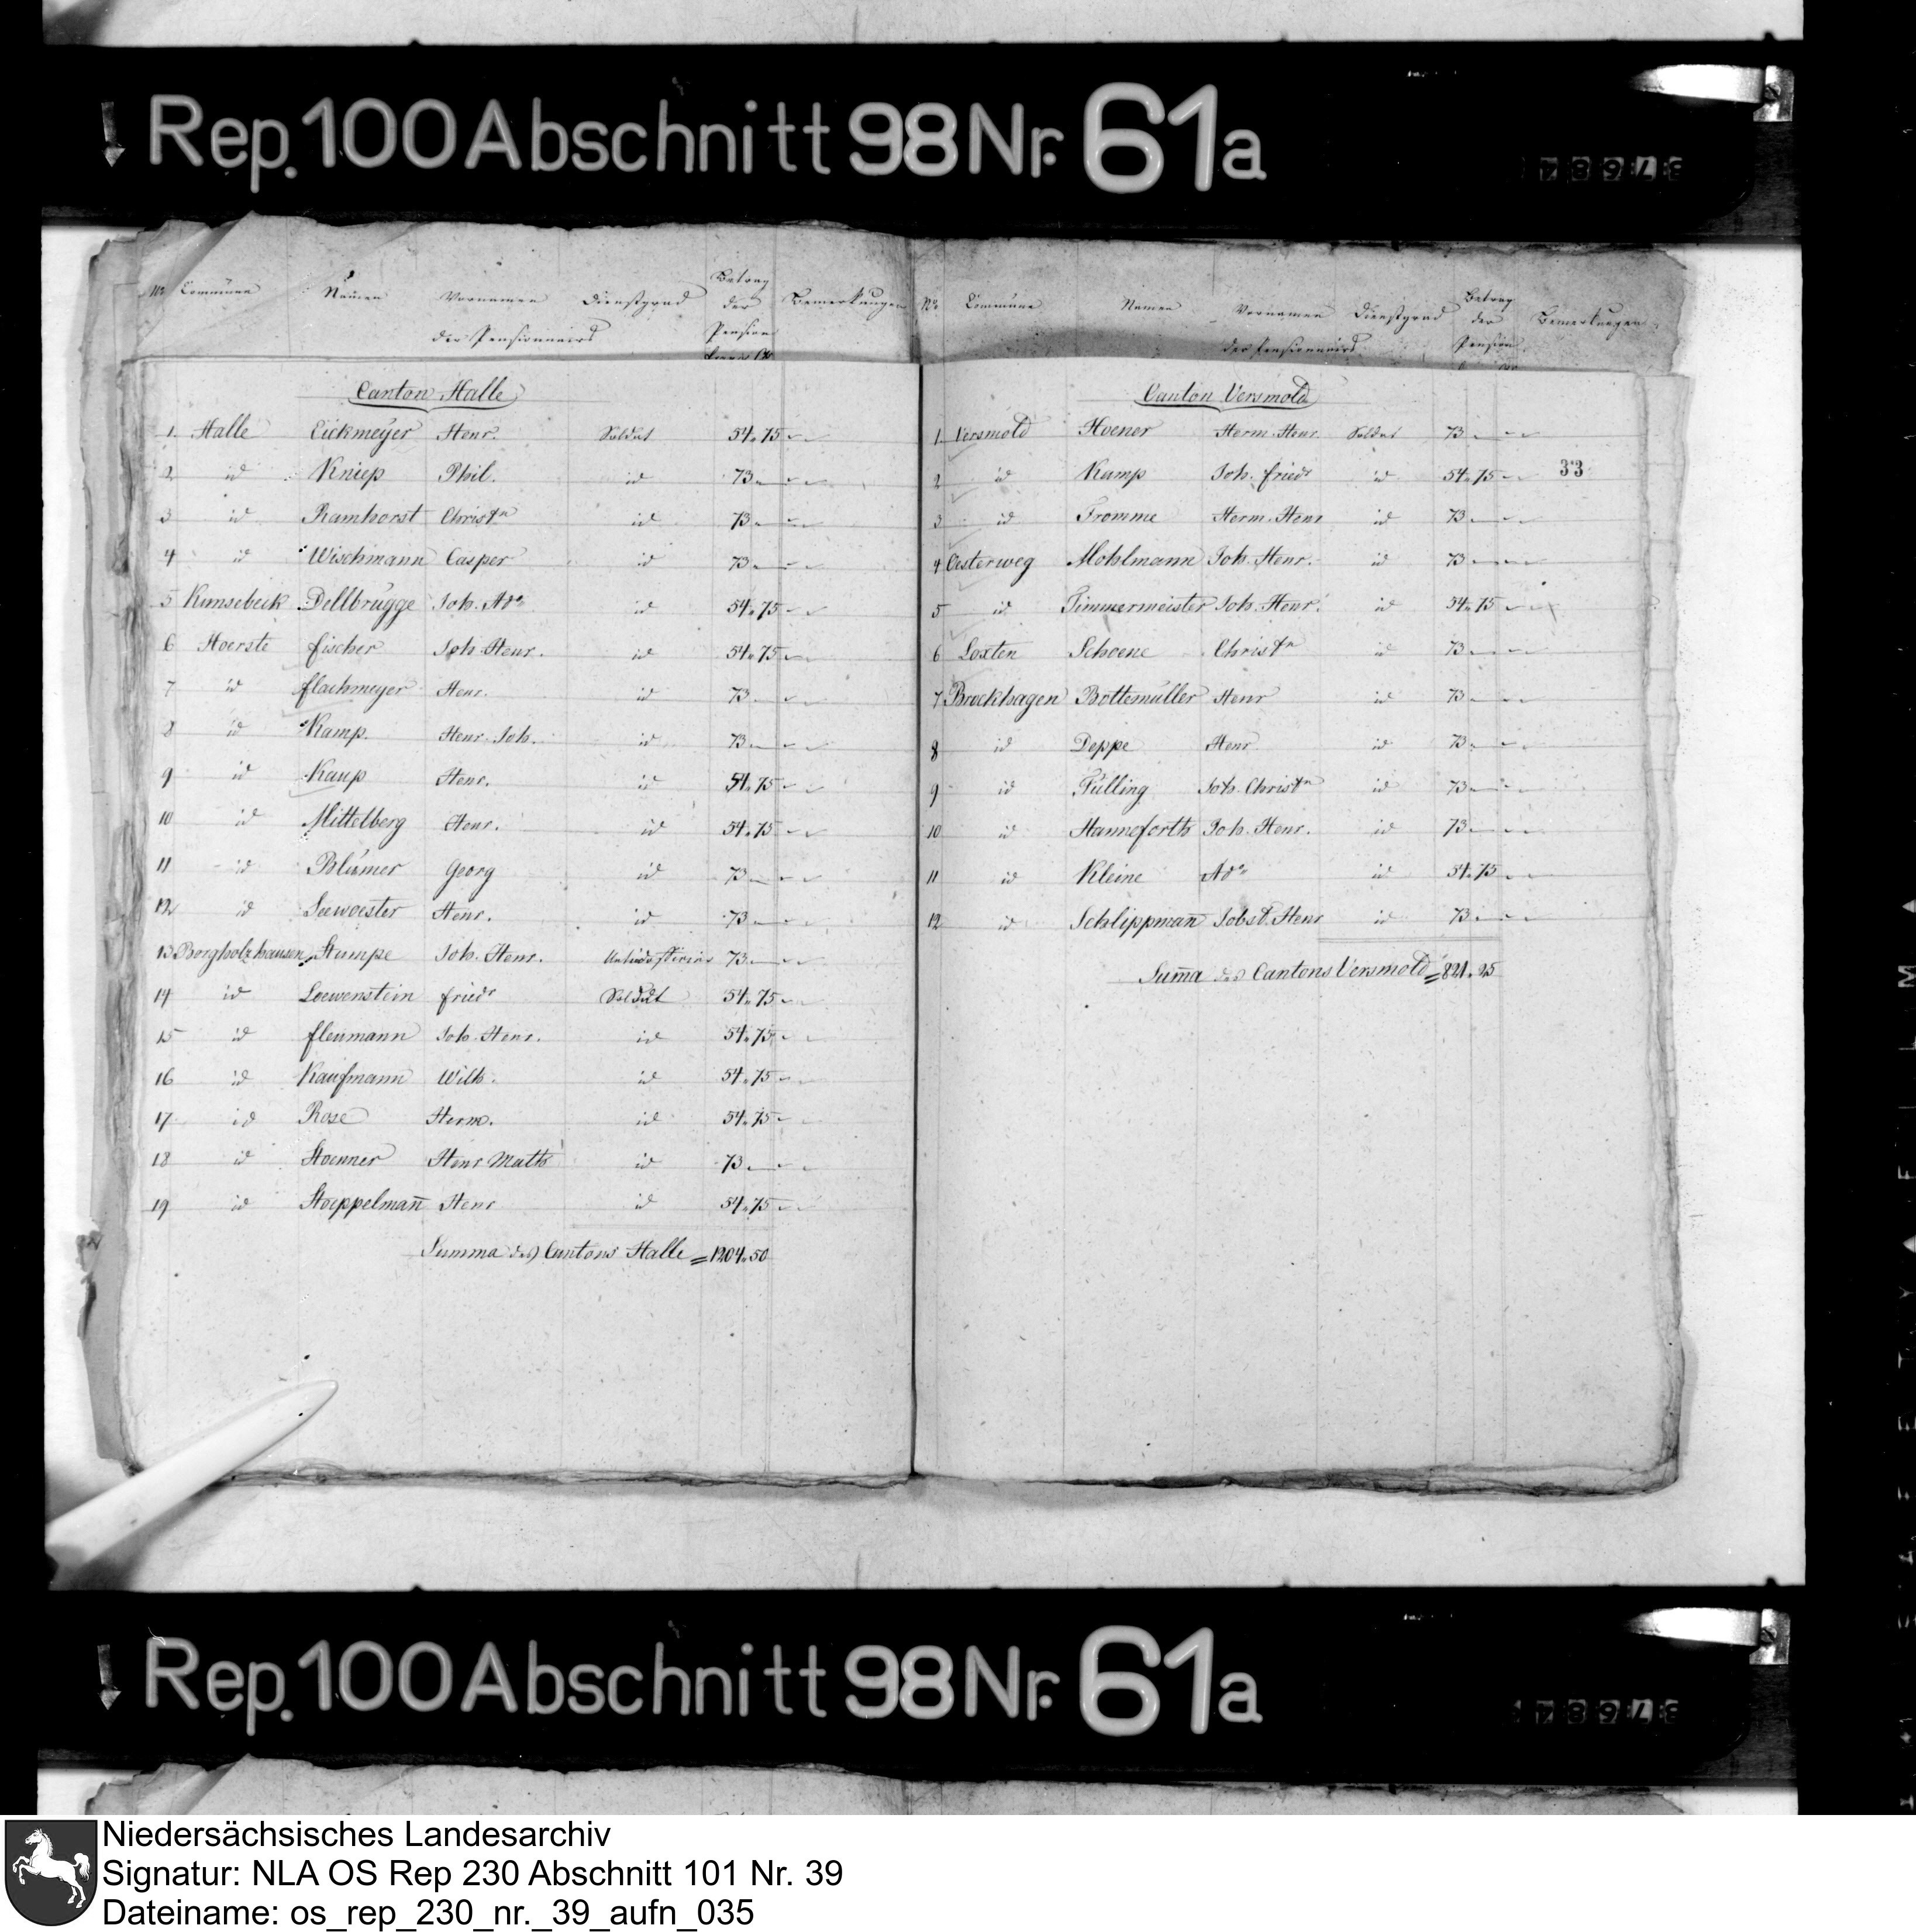 Rep. 100 Abschnitt 98 Nr. 61a
37684
No Commüne Namen Vornamen Dienstgrad Betrag der Pension Bemerkungen
der Pensionnairs
Canton Halle
1. Halle Eickmeyer Henr. Soldat 54. 75
2 id Kniep Phil. id 73
3 id Ramhorst Christn id 73
4 id Wischmann Casper id 73
5 Kunsebeck Dellbrügge Joh. Ad. id 54. 75
6 Hoerste Fischer Joh. Henr. id 54. 75
7 id Flachmeyer Henr. id 73
8 id Kamp. Henr. Joh. id 73
9 id Kaup Henr. id 54. 75
10 id Mittelberg Henr. id 54. 75
11 id Blümer Georg id 73
12 id Seewoester Henr. id 73
13 Borgholzhausen Stumpe Joh. Henr. Unterofficier 73
14 id Loewenstein Friedr Soldat 54. 75
15 id Fleumann Joh. Henr. id 54. 75
16 id Kaufmann Wilh. id 54. 75
17 id Rose Herm. id 54. 75
18 id Hoenner Henr Math id 73
19 id Stoeppelman̄ Henr id 54. 75
Summa des Cantons Halle = 1204. 50
No Commüne Namen Vornamen Dienstgrad Betrag der Pension Bemerkungen
der Pensionnairs
Canton Versmold
1. Versmold Hoener Herm. Henr. Soldat 73
2 id Kamp Joh. Friedr id 54. 75
33
3 id Fromme Herm. Henr id 73
4 Oesterweg Mohlmann Joh. Henr. id 73
5 id Timmermeister Joh. Henr. id 54. 75
6 Loxten Schoene Christn id 73
7 Brockhagen Bottemüller Henr id 73
8 id Deppe Henr id 73
9 id Fülling Joh. Christn id 73
10 id Hanneforth Joh. Henr. id 73
11 id Kleine Ad. id 54. 75
12 id Schlippman̄ Jobst. Henr id 73
Sum̄a des Cantons Versmold = 821. 25
Rep. 100 Abschnitt 98 Nr. 61a
37684
Niedersächsisches Landesarchiv
Signatur: NLA OS Rep 230 Abschnitt 101 Nr. 39
Dateiname: os_rep_230_nr._39_aufn_035